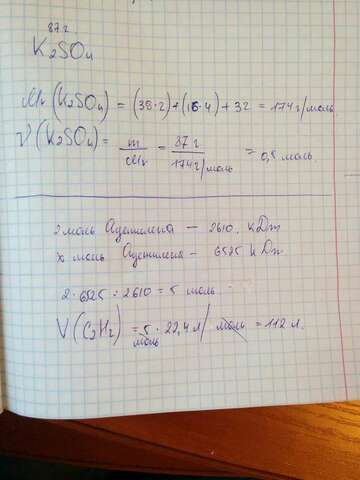 87 г
K₂SO₄
Mr (K₂SO₄) = (39·2) + (16·4) + 32 = 174 г/моль
ν (K₂SO₄) = m/Mr = 87 г/174 г/моль = 0,5 моль
2 моль Ацетилена — 2610 кДж
x моль Ацетилена — 6525 кДж
2 · 6525 : 2610 = 5 моль
V (C₂H₂) = 5 моль · 22,4 л/моль = 112 л.